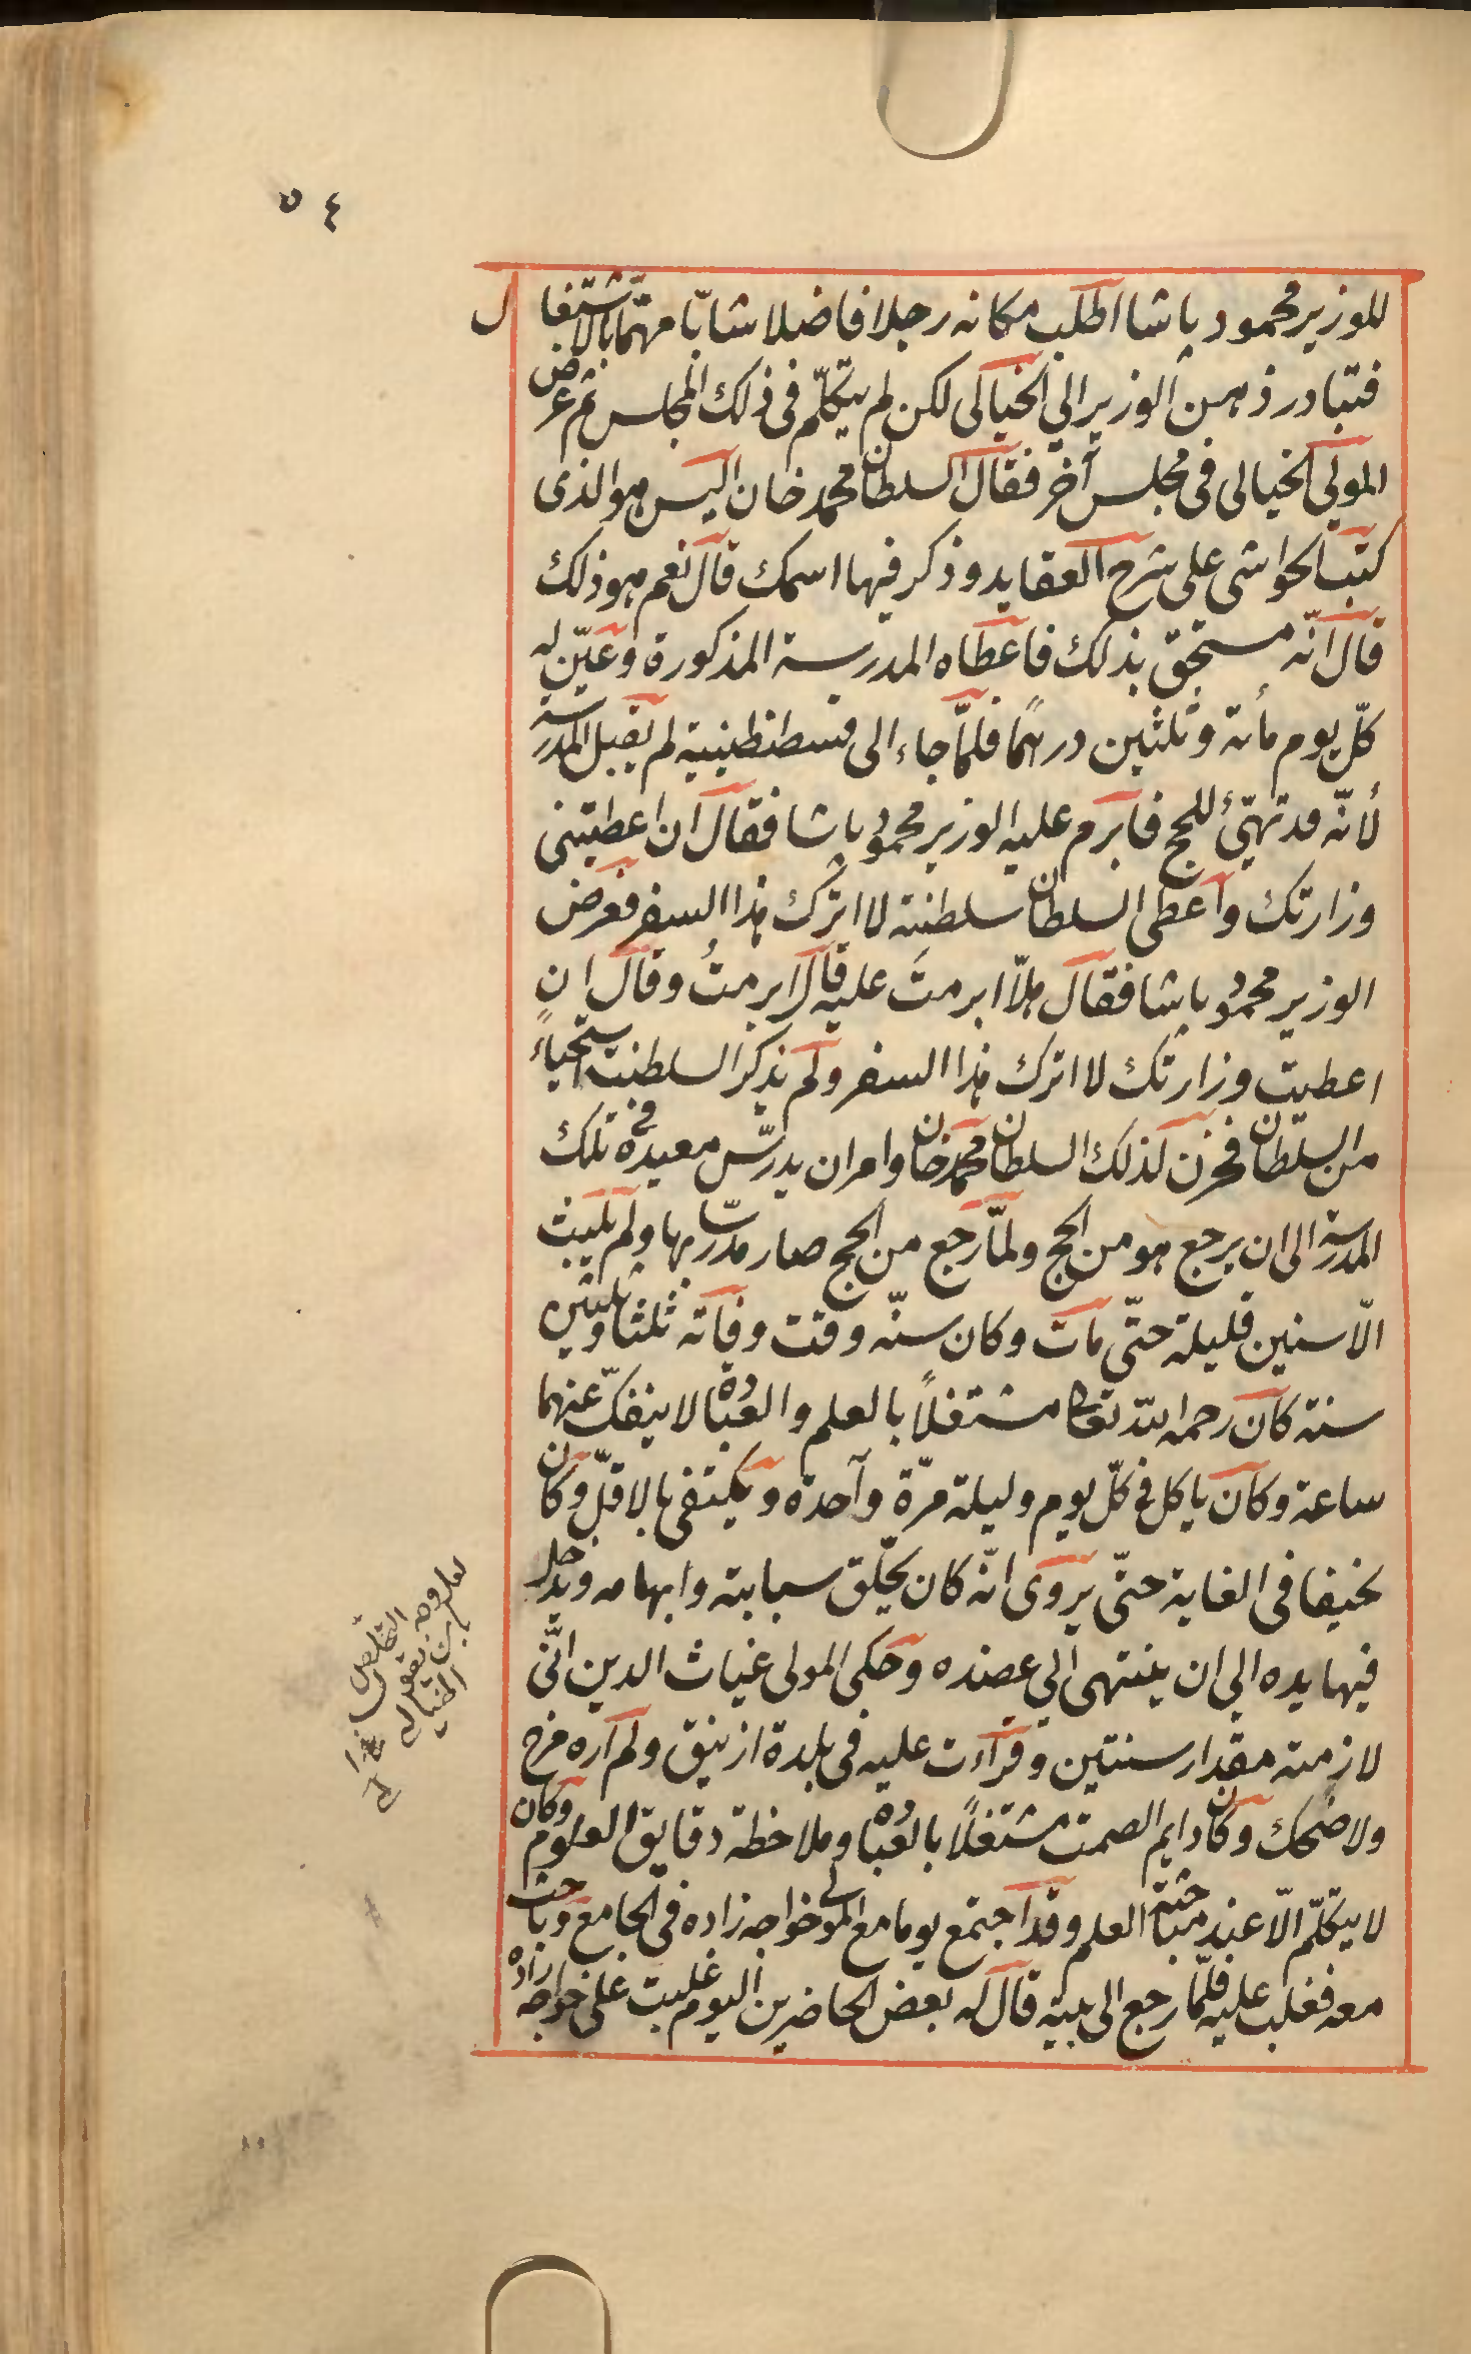 ٥٤
للوزير محمود باشا اطلب مكانه رجلا فاضلا شابّا مهتمّا بالاشتغال
فتبادر ذهن الوزير الي الخيالى لكن لم يتكلّم فى ذلك المجلس ثم عرض
المولى الخيالى فى مجلس آخر فقال السلطان محمد خان اليس هو الذى
كتب الحواشى على شرح العقايد وذكر فيها اسمك قال نعم هو ذلك
قال انّه مستحق بذلك فاعطاه المدرسة المذكورة وعيّن له
كلّ يوم مأئة وثلثين درهمًا فلمّا جاء الى قسطنطينية لم يقبل المدرسة
لأنّه قد تهيّئ للحج فابرم عليه الوزير محمود باشا فقال ان اعطيتنى
وزارتك واعطى السلطان سلطنته لا اترك هذا السفر فعرض
الوزير محمود باشا فقال هلّا ابرمتَ عليه قال ابرمتُ وقال ان
اعطيت وزارتك لا اترك هذا السفر ولم يذكر السلطنة استحياءً
من السلطان فحزن لذلك السلطان محمد خان وامر ان يدرّس معيده فى تلك
المدرسة الى ان يرجع هو من الحج ولمّا رجع من الحج صار مدرّسا بها ولم يلبث
الّا سنين قليلة حتّى مات وكان سنّه وقت وفاته ثلثا وثلثين
سنة كان رحمه اللّه تعالى مشتغلاً بالعلم والعبادة لا ينفكّ عنهما
ساعة وكان ياكل فى كلّ يوم وليلة مرّة وآحدة ويكتفى بالاقلّ وكان
نحيفا فى الغاية حتّى يروى انّه كان يحلّق سبابته وابهامه ويدخل
فيها يده الى ان ينتهى الي عضده وحكى المولى غياث الدين انّى
لازمته مقدار سنتين وقرأءت عليه فى بلدة ازنيق ولم اره فرح
ولا ضحك وكان دايم الصمت مشتغلاً بالعبادة وملاحظة دقايق العلوم وكان
لا يتكلّم الّا عند مباحثة العلم وقد اجتمع يوما مع المولى خواجه زاده فى الجامع وباحث
معه فغلب عليه فلمّا رجع الى بيته قال له بعض الحاضرين اليوم غلبت على خواجه زاده